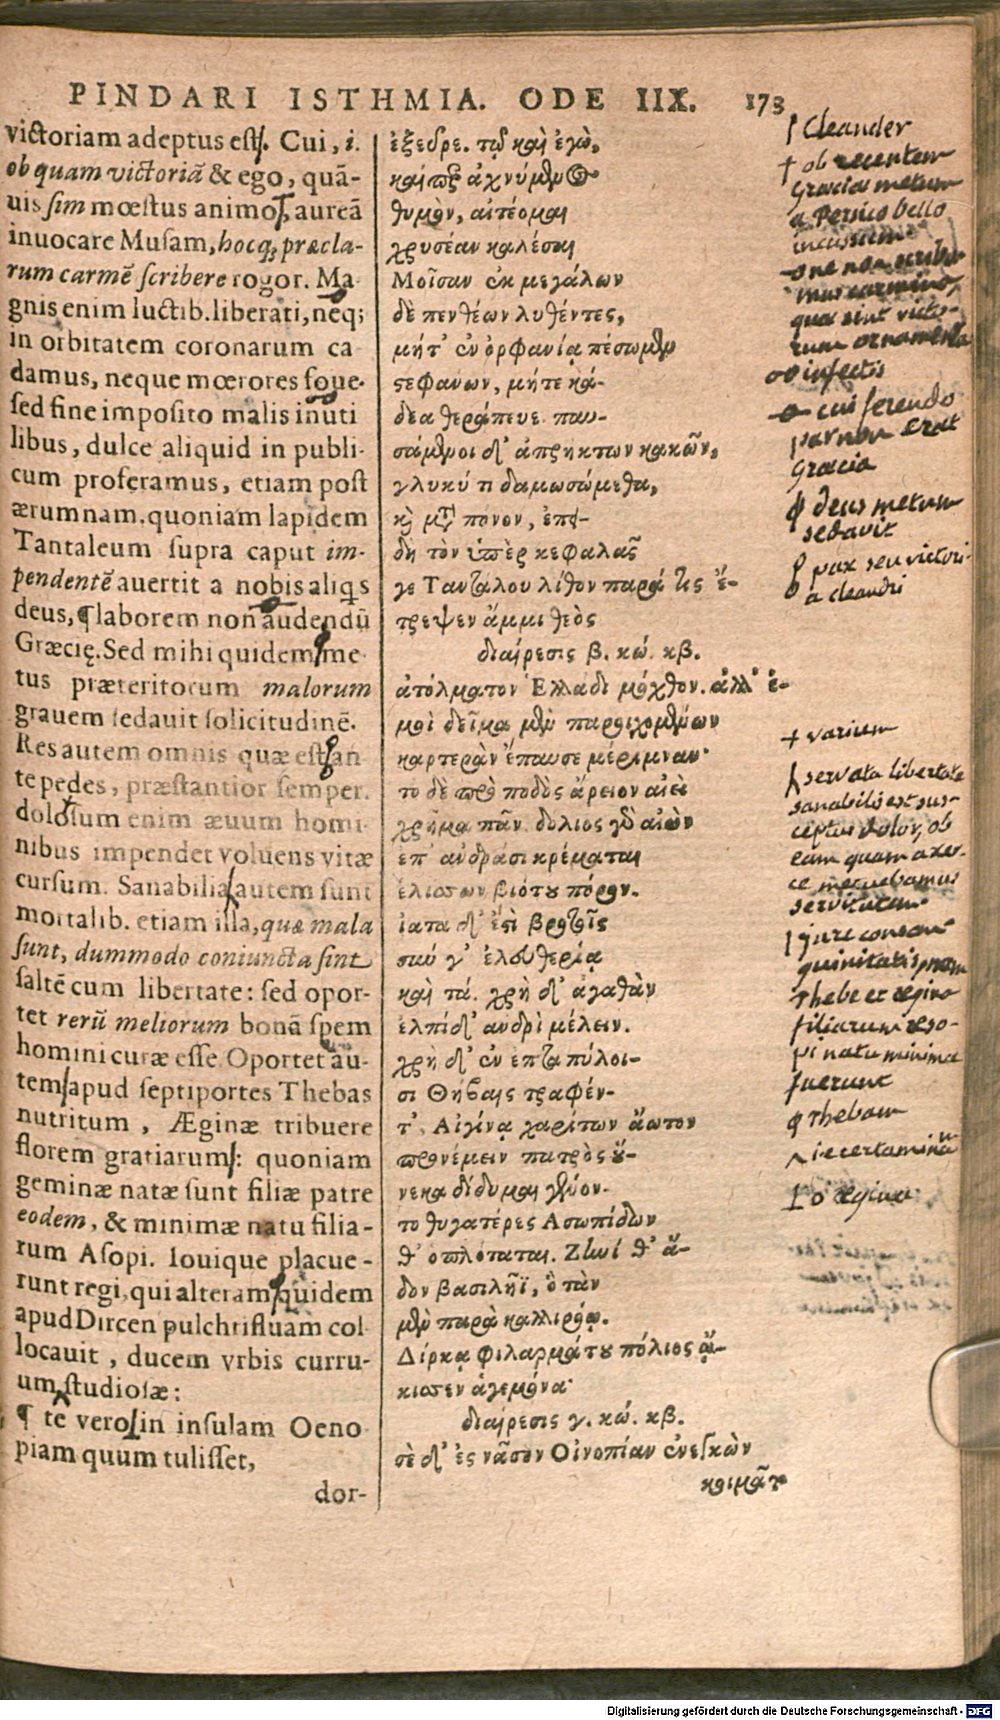 PINDARI ISTHMIA. ODE IIX. 173
victoriam adeptus est. Cui, i.
ob quam victoriā & ego, quā-
uis sim mœstus animo, aureā
inuocare Musam, hocq; præcla-
rum carmē scribere rogor. Ma
gnis enim luctib. liberati, neq;
in orbitatem coronarum ca
damus, neque mœrores foue.
sed fine imposito malis inuti
libus, dulce aliquid in publi-
cum proferamus, etiam post
ærumnam, quoniam lapidem
Tantaleum supra caput im-
pendentē auertit a nobis aliqs
deus, ¶ laborem non audendū
Græcię. Sed mihi quidem me
tus præteritorum malorum
grauem sedauit solicitudinē.
Res autem omnis quæ est an
te pedes, præstantior semper.
dolosum enim æuum homi-
nibus impendet voluens vitæ
cursum. Sanabilia autem sunt
mortalib. etiam illa, quæ mala
sunt, dummodo coniuncta sint
saltē cum libertate: sed opor-
tet rerū meliorum bonā spem
homini curæ esse. Oportet au-
tem apud septiportes Thebas
nutritum, Æginæ tribuere
florem gratiarum: quoniam
geminæ natæ sunt filiæ patre
eodem, & minimæ natu filia-
rum Asopi. Iouique placue-
runt regi, qui alteram quidem
apud Dircen pulchrifluam col
locauit, ducem vrbis curru-
um studiosæ:
¶ te vero in insulam Oeno
piam quum tulisset,
dor-
ἐξεδρε. τῷ καὶ ἐγὼ,
καίπερ ἀχνύμενος
θυμὸν, αἰτέομαι
χρυσέαν καλέσαι
Μοῖσαν ἐκ μεγάλων
δὲ πενθέων λυθέντες,
μήτ' ἐν ὀρφανίᾳ πέσωμεν
στεφανων, μήτε κά-
δεα θεράπευε. παυ-
σάμενοι δ' ἀπρηκτων κακῶν,
γλυκύ τι δαμωσώμεθα,
καὶ μετὰ πονον, ἐπει-
δὴ τὸν ὑπὲρ κεφαλᾶς
γε Ταντάλου λίθον παρά τις ἔ-
τρεψεν ἄμμι θεὸς
διαίρεσις β. κώ. κβ.
ἀτόλματον Ἑλλαδι μόχθον. ἀλλ' ἐ-
μοὶ δεῖμα μὲν παροιχομένων
καρτερὰν ἔπαυσε μέριμναν·
το δὲ πρὸ ποδὸς ἄρειον αἰεὶ
χρῆμα πᾶν. δόλιος γὰρ αἰὼν
ἐπ' ἀνδράσι κρέμαται
ἑλίσσων βιότου πόρον.
ἰατα δ' ἐστὶ βροτοῖς
σύν γ' ἐλευθερίᾳ
καὶ τά. χρὴ δ' ἀγαθὰν
ἐλπίδ' ἀνδρὶ μέλειν.
χρὴ δ' ἐν ἑπταπύλοι-
σι Θήβαις τραφέν-
τ', Αἰγίνᾳ χαρίτων ἄωτον
προνέμειν πατρὸς οὕ-
νεκα δίδυμαι γένον-
το θυγατέρες Ἀσωπίδων
θ' ὁπλόταται. Ζηνί θ' ἅ-
δον βασιλῆϊ, ὃ τὰν
μὲν παρὰ καλλιρόῳ.
Δίρκᾳ φιλαρμάτου πόλιος ᾤ-
κισσεν ἁγεμόνα·
διαίρεσις γ. κώ. κβ.
σὲ δ' ἐς νᾶσον Οἰνοπίαν ἐνεγκὼν
κοιμᾶτο
Cleander
† ob recentem
Græciæ metum
a Persico bello
ne non scriba
mus carmina,
quæ sint victo-
rum ornamenta
infectis
cui ferendo
par non erat
Græcia
deus metum
sedavit
pax seu victori
a Cleandri
+ varium
servata libertate
sanabilis est sus-
ceptus dolor, ob
eam quam
metuebamus
servitutem
jure consan
guinitatis
Thebe et Ægina
filiarum Aso-
pi natu minimæ
fuerunt
Thebam
o Ægina
Digitalisierung gefördert durch die Deutsche Forschungsgemeinschaft - DFG